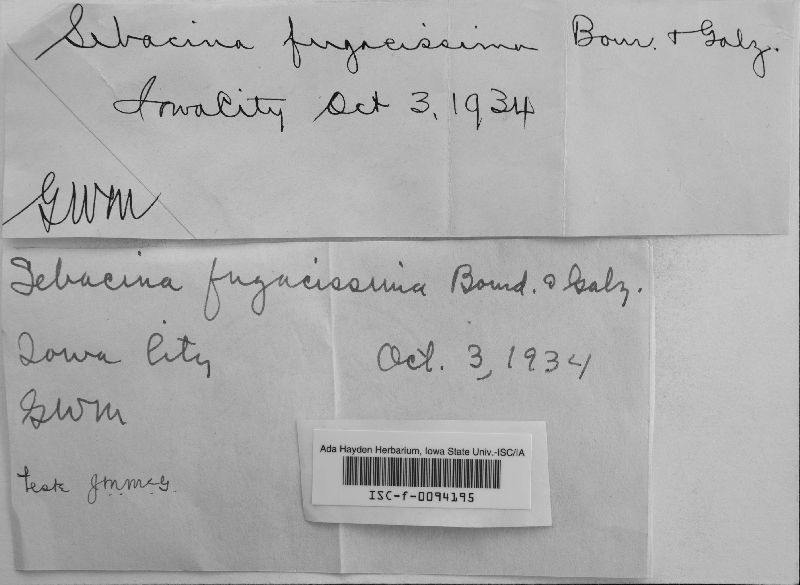 Sebacina fugacissima Bour. & Galz.
Iowa City Oct 3, 1934
GWM
Sebacina fugacissima Bourd. & Galz.
Iowa City Oct. 3, 1934
GWM
Teste JMMcG.
Ada Hayden Herbarium, Iowa State Univ.-ISC/IA
ISC-f-0094195